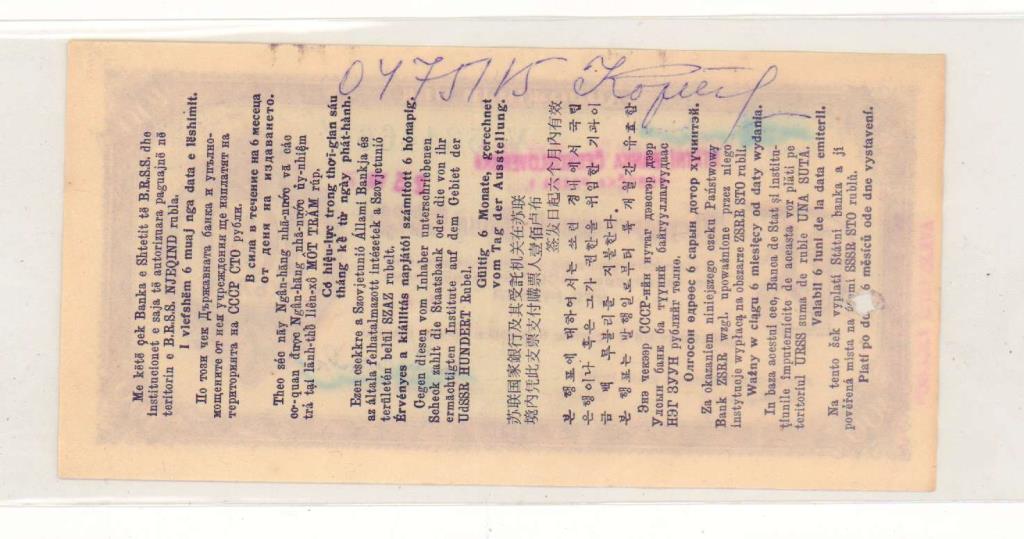 0475115
Me këtë çek Banka e Shtetit të B.R.S.S. dhe
Institucionet e saja të autorizuara paguajnë në
teritorin e B.R.S.S. NJEQIND rubla.
I vlefshëm 6 muaj nga data e lëshimit.
По този чек Държавната банка и упълно-
мощените от нея учреждения ще изплатят на
територията на СССР СТО рубли.
В сила в течение на 6 месеца
от деня на издаването.
Theo séc nầy Ngân-hàng nhà-nước và các
cơ-quan được Ngân-hàng nhà-nước ủy-nhiệm
trả tại lãnh-thồ liên-xô MỘT TRĂM rúp.
Có hiệu-lực trong thời-gian sáu
tháng kể từ ngày phát-hành.
Ezen csekkre a Szovjetunió Állami Bankja és
az általa felhatalmazott intézetek a Szovjetunió
területén belül SZÁZ rubelt.
Érvényes a kiállítás napjától számított 6 hónapig.
Gegen diesen vom Inhaber unterschriebenen
Scheck zahlt die Staatsbank oder die von ihr
ermächtigten Institute auf dem Gebiet der
UdSSR HUNDERT Rubel.
Gültig 6 Monate, gerechnet
vom Tag der Ausstellung.
苏联国家銀行及其受託机关在苏联
境内凭此支票支付購票人壹佰卢布
签发日起六个月内有效
본 행표에 대하여서는 쏘련 경내에서 국립
은행이나 혹은 그가 권한을 위임한 기관이
금 백 루블리를 지불한다.
본 행표는 발행일로부터 륙 개월간 유효함
Энэ чекээр СССР-ийн нутаг дэвсгэр дээр
Улсын банк ба түүний байгууллагуудаас
НЭГ ЗУУН рублийг төлнө.
Олгосон өдрөөс 6 сарын дотор хүчинтэй.
Za okazaniem niniejszego czeku Państwowy
Bank ZSRR wzgl. upoważnione przez niego
instytucje wypłacą na obszarze ZSRR STO rubli.
Ważny w ciągu 6 miesięcy od daty wydania.
In baza acestui cec, Banca de Stat și institu-
țiunile împuternicite de aceasta vor plăti pe
teritoriul URSS suma de ruble UNA SUTA.
Valabil 6 luni de la data emiterii.
Na tento šek vyplatí Státní banka a jí
pověřená místa na území SSSR STO rublů.
Platí po dobu 6 měsíců ode dne vystavení.